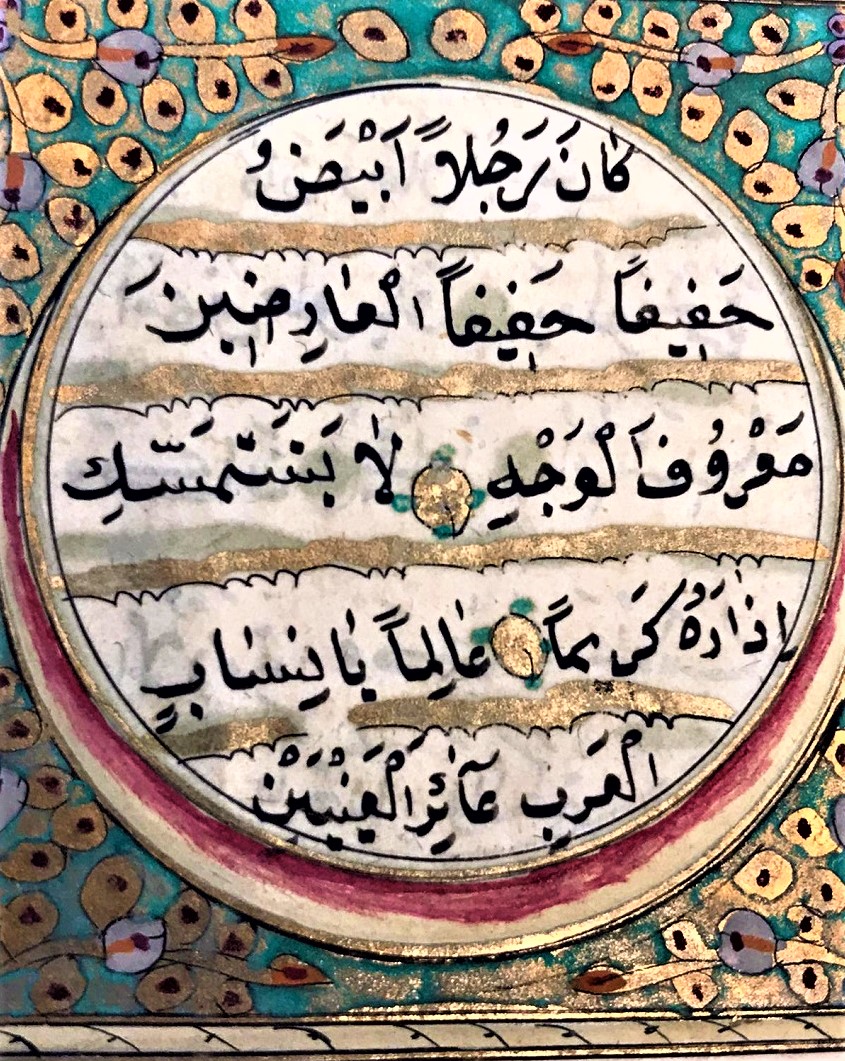 كَانَ رَجُلاً اَبْيَضَ
حَفِيفاً حَفِيفاً الْعَارِضِينَ
مَعْرُوفَ الْوَجْهِ لَا يَسْتَمْسَكِ
اِذَارَهُ كَرِيماً عَالِماً بَانِسَابِ
الْعَرَبِ عَآئِرَ الْعَيْنَيْنِ